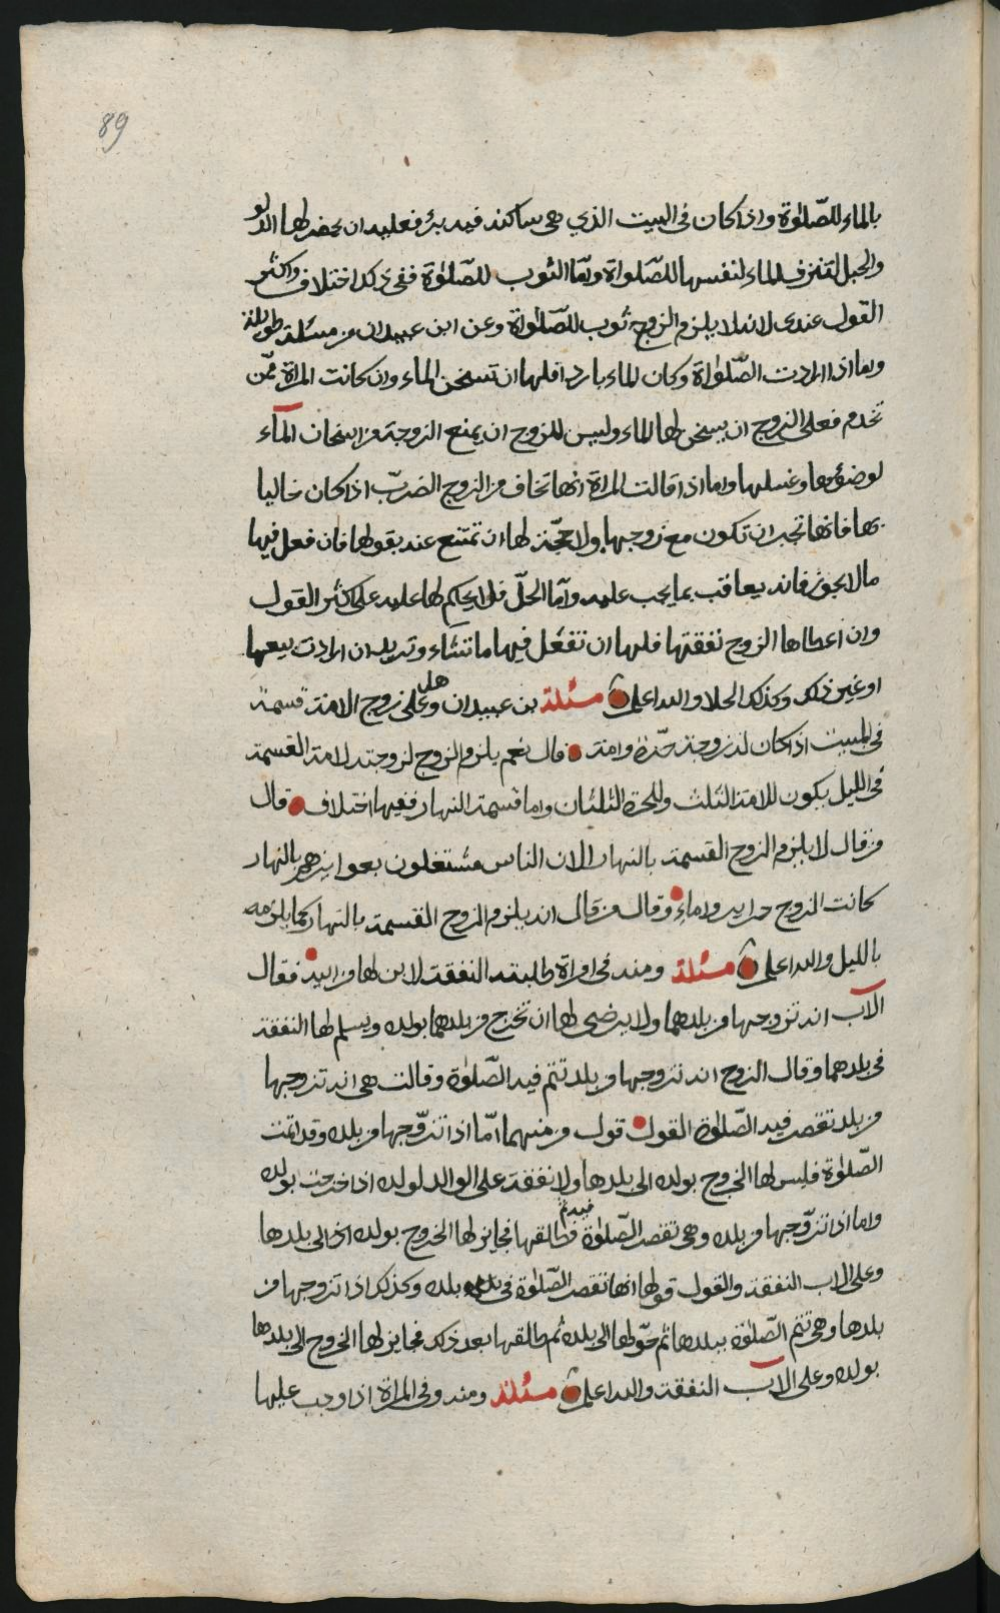 89
بالماء للصّلوٰة واذا كان فى البيت الذي هى ساكنه فيه بئر فعليه ان يحضر لها الدلو
والحبل لتنزف الماء لنفسها للصّلواة وامّا الثوب للصّلوٰة ففى ذلك اختلاف واكثر
القول عندى لانه لا يلزم الزوج ثوب للصّلواة وعن ابن عبيدان من مسئلة طويلة
واما اذا ارادت الصّلوٰاة وكان الماء باردا فلها ان تسخن الماء وان كانت المراة ممّن
تخدم فعلى الزوج ان يسخن لها الماء وليس للزوج ان يمنع الزوجة من اسخان المآء
لوضوئها وغسلها واما اذا قالت المراة انها تخاف من الزوج الضرب اذا كان خاليا
بها فانها تجبر ان تكون مع زوجها ولا حجّة لها ان تمتنع عنه بقولها فان فعل فيها
مالا يجوز فانه يعاقب بما يجب عليه وآما الحلّ فلا يحكم لها عليه على اكثر القول
وان اعطاها الزوج نفقتها فلها ان تفعل فيها ما تشاء وتريد ان ارادت بيعها
او غير ذلك وكذلك الحلا والله اعلم مسئلة بن عبيدان وهل على زوج الامة قسمة
فى المبيت اذا كان له زوجة حرّة وامة قال نعم يلزم الزوج لزوجته الامة القسمة
فى الليل يكون للامة الثلث وللحرة الثلثان واما قسمة النهار ففيها اختلاف قال
من قال لا يلزم الزوج القسمة بالنهار لان الناس مشتغلون بعوايزهم بالنهار
كانت الزوج حراير واماء وقال من قال انه يلزم الزوج القسمة بالنهار كما يلزمه
بالليل والله اعلم مسئلة ومنه فى امراة طلبته النفقة لابن لها من ابيه فقال
الآب انه تزوجها من بلدهما ولا يرضى لها ان تخرج من بلدهما بولده ويسلم لها النفقة
فى بلدهما وقال الزوج انه تزوجها من بلد تتم فيه الصّلوٰة وقالت هى انه تزوجها
من بلد تقصر فيه الصّلوٰة القول قول من منهما امّا اذا تزوّجها من بلده وقد اتمت
الصّلوٰة فليس لها الخروج بولده الى بلدها ولا نفقة على الوالد لولده اذا خرجت بولده
واما اذا تزوّجها من بلده وهى تقصر الصّلوٰة فيه ثم طالقها فجايز لها الخروج بولده الى بلدها
وعلى الاب النفقة والقول قولها انها تقصر الصّلوٰة فى بلده وكذلك اذا تزوجها من
بلدها وهى تتم الصّلوٰة ببلدها ثم حوّلها الى بلده ثم طالقها بعد ذلك فجايز لها الخروج الى بلدها
بولده وعلى الآب النفقة والله اعلم مسئلة ومنه وفى المراة اذا وجب عليها